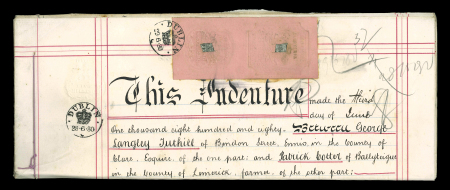 DUBLIN
28·6·80
DUBLIN
28·6·80
This Indenture made the third
day of June
one thousand eight hundred and eighty. Between George
Langley Tuthill of Bindon Street, Ennis, in the County of
Clare, Esquire of the one part; and Patrick Cotter of Ballyteigue
in the County of Limerick, farmer, of the other part;